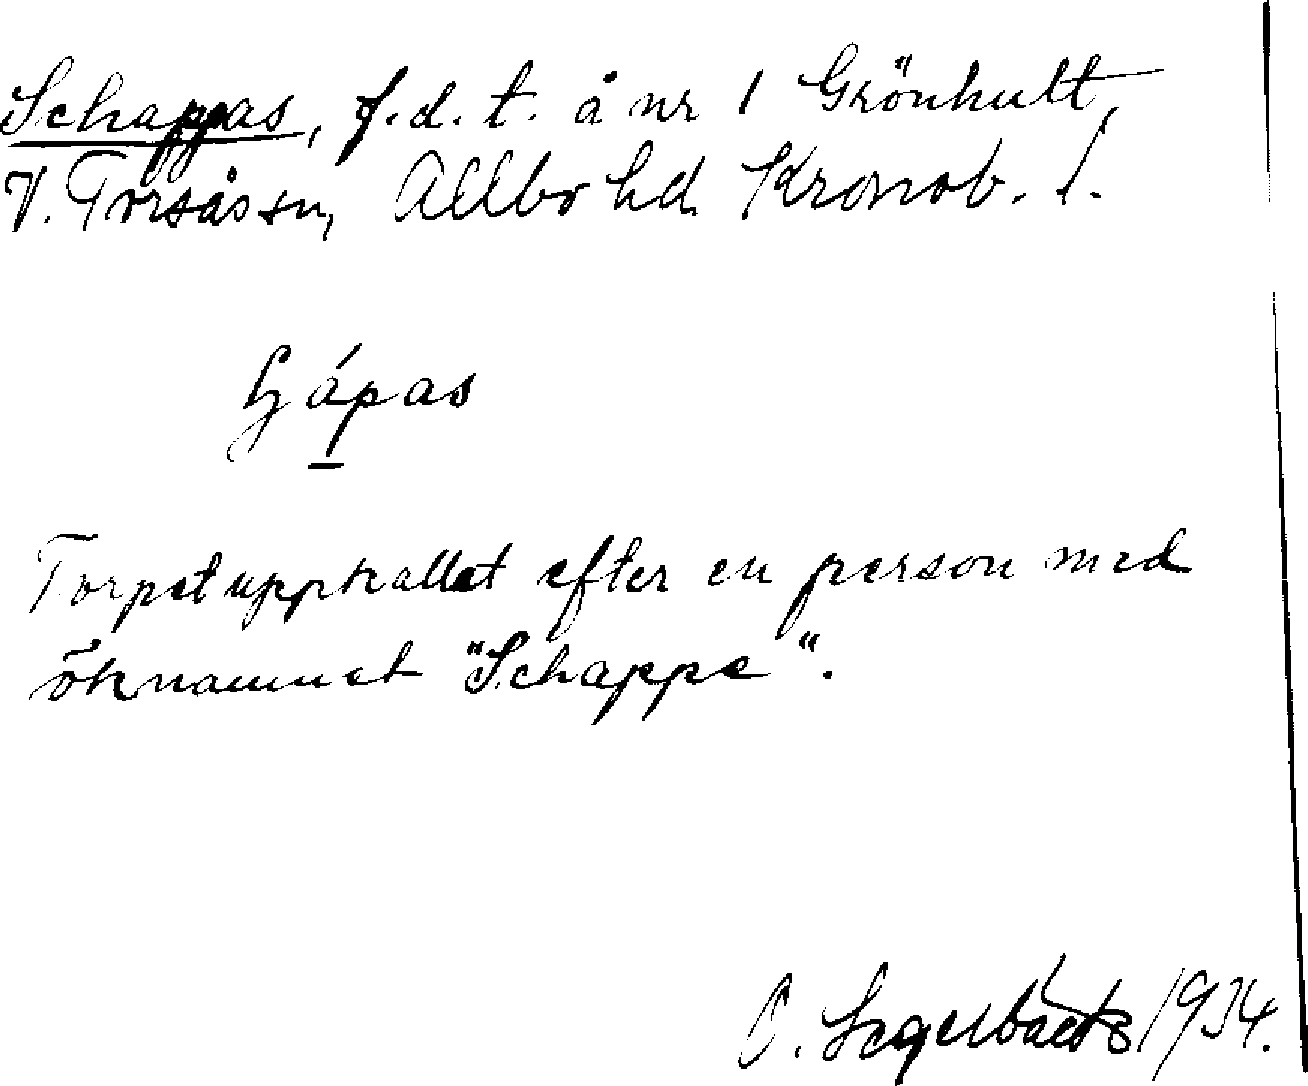 Schappas, f.d.t. å nr 1 Grönhult,
V. Torsås sn, Allbo hd. Kronob. l.
ɧápas
Torpet uppkallat efter en person med
öknamnet "Schappe".
1934.